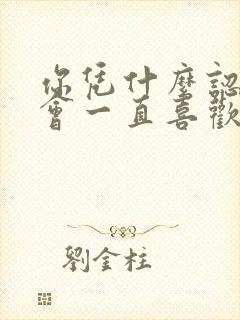 你凭什麼認
會一直喜歡
劉金柱